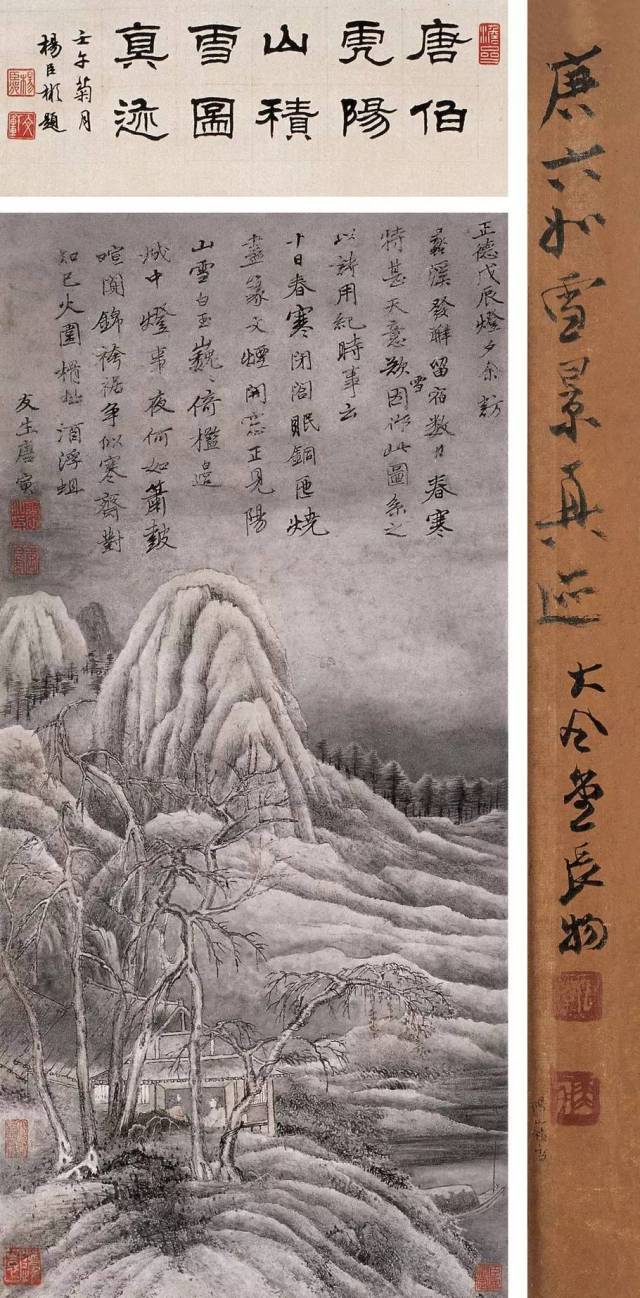 唐伯
虎陽
山積
雪圖
真迹
壬午菊月
楊臣彬題
正德戊辰燈夕余訪
溪發解留宿数日春寒
特甚天意欲雪因作此圖系之
以詩用紀時事云
十日春寒閉閣眠銅匜燒
盡篆文煙開窓正見陽
山雪白玉巍〻倚檻邊
城中燈事夜何如簫鼓
喧闐錦袴裾争似寒齋對
知已火圍榾柮酒浮蛆
友生唐寅
唐六如雪景真迹 大風堂長物